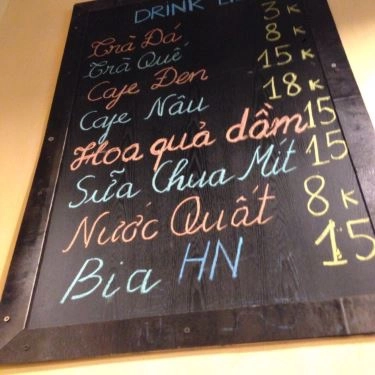 DRINK
Trà Đá 3K
Trà Quế 8K
Cafe Đen 15K
Cafe Nâu 18K
Hoa quả dầm 15
Sữa Chua Mít 15
Nước Quất 8K
Bia HN 15